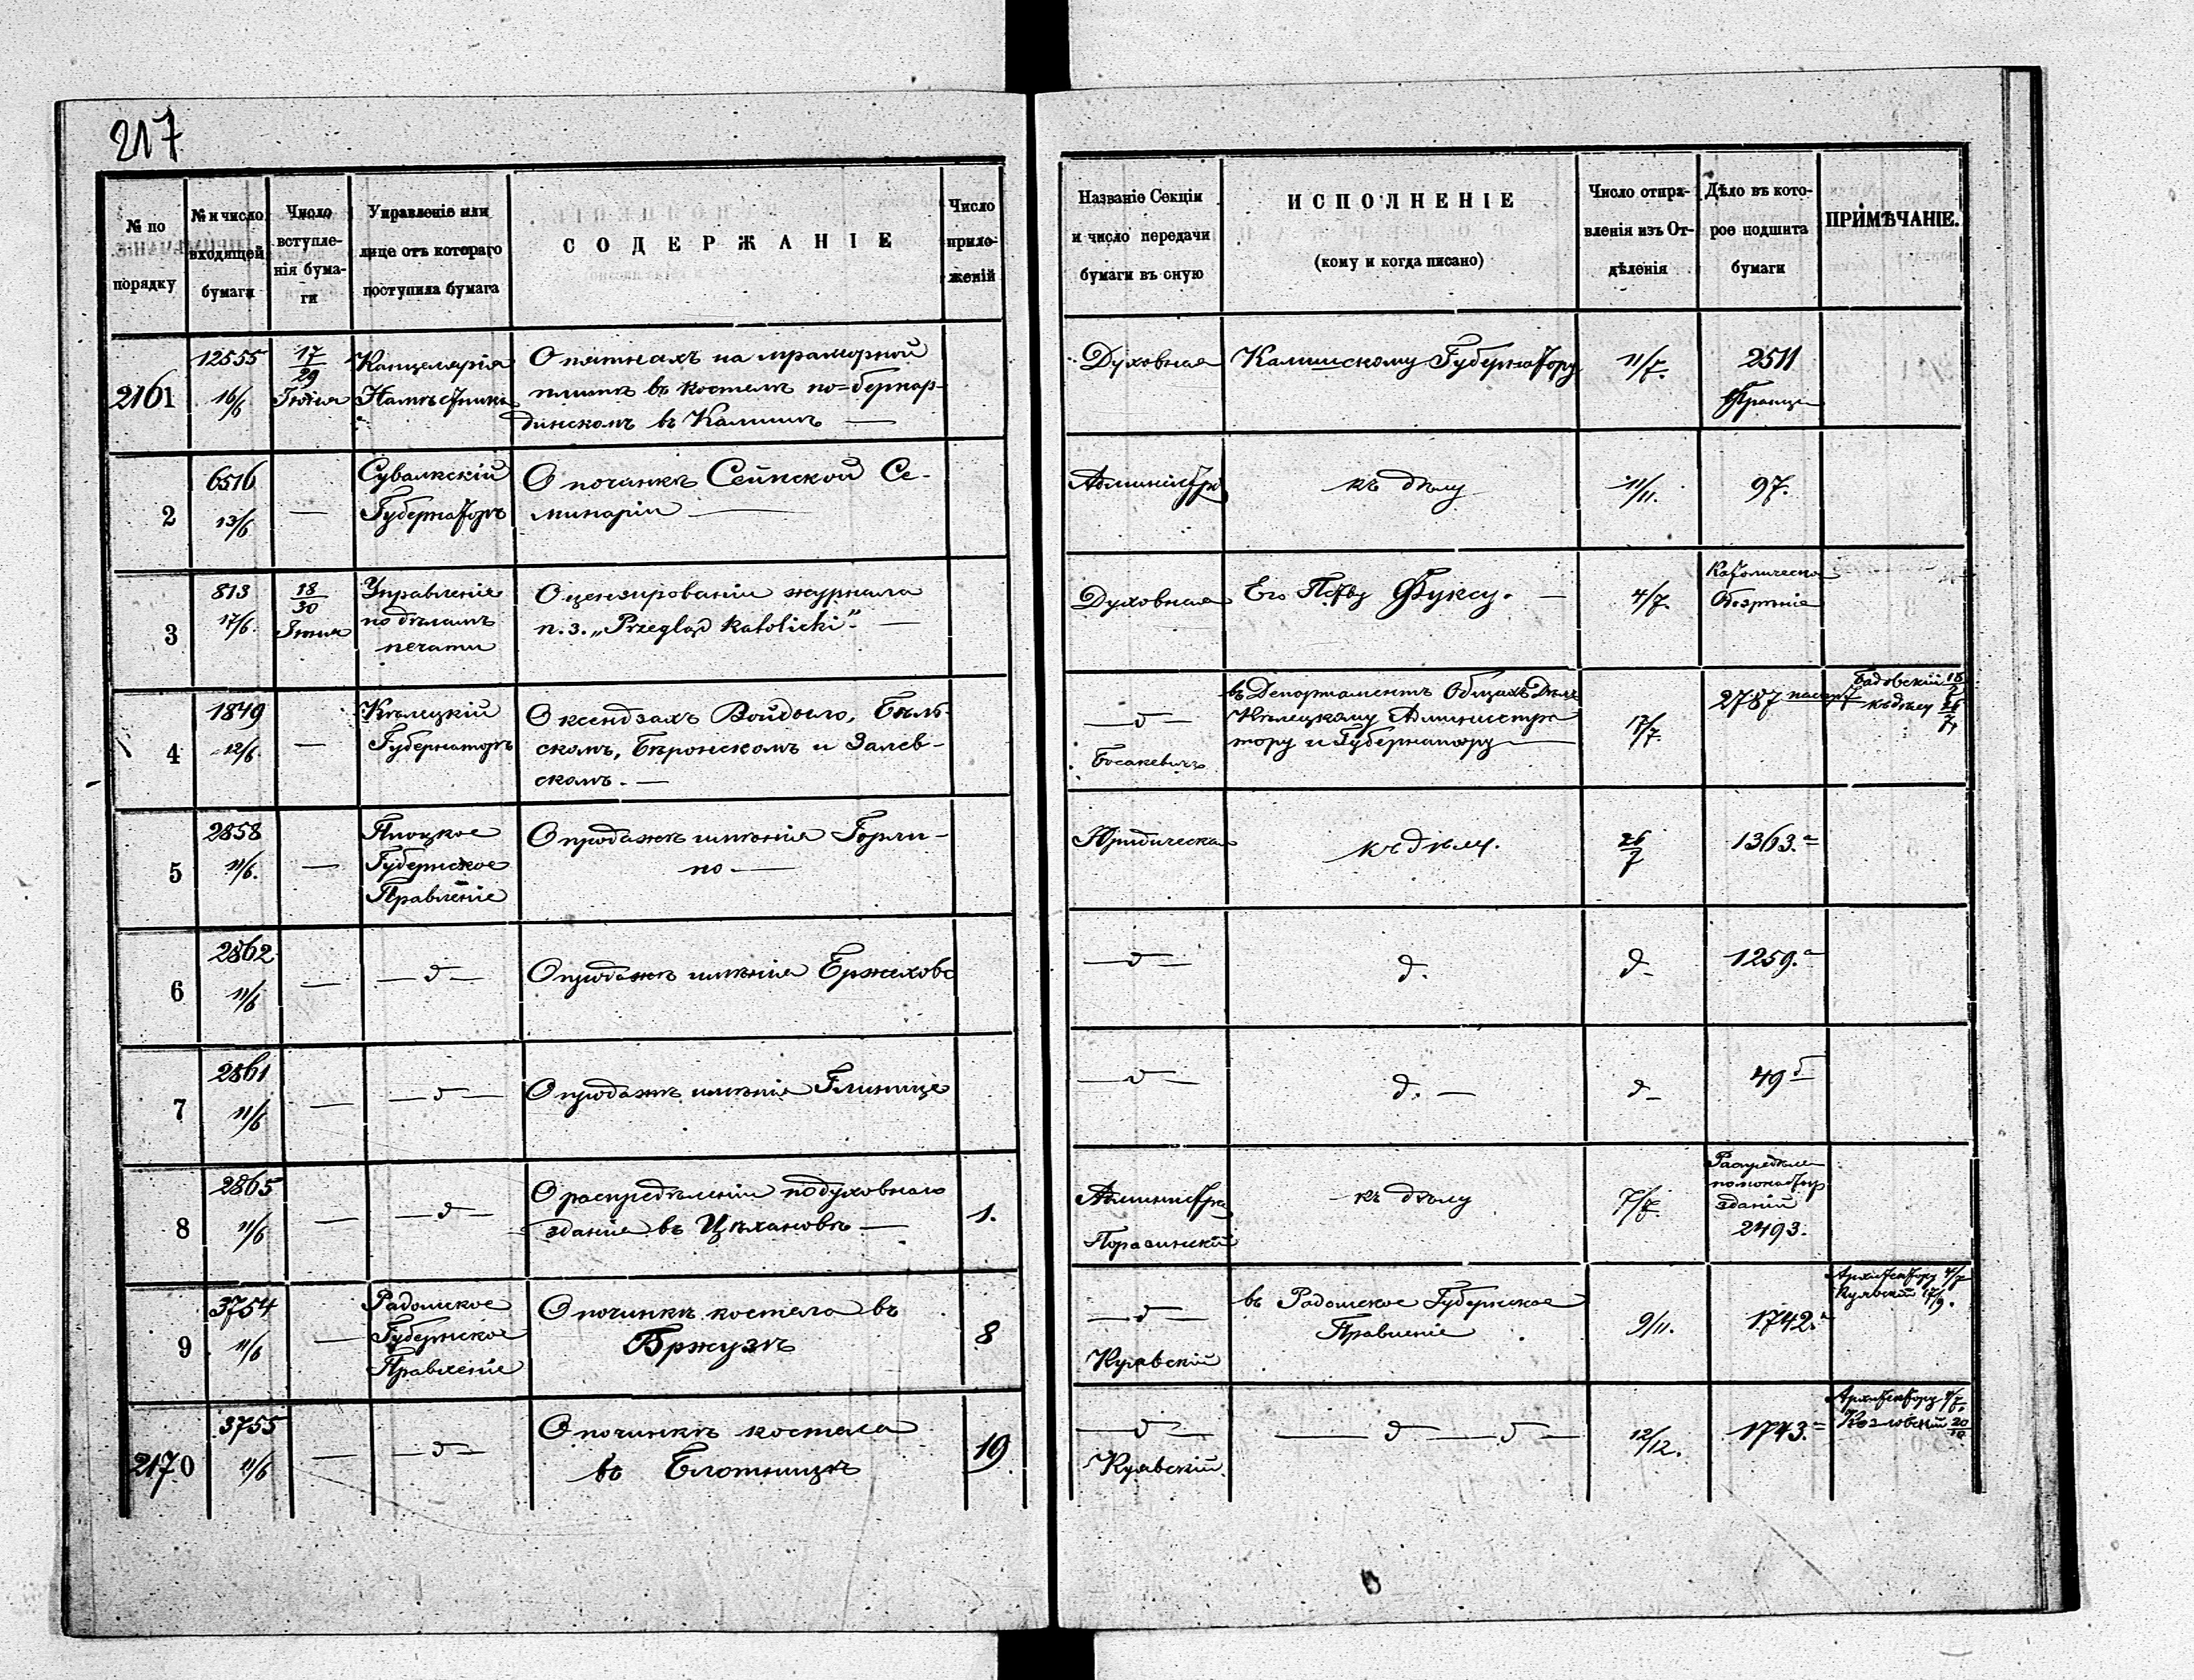 217
№ по
порядку
№ и число
входящей
бумаги
Число
вступле-
нія бума-
ги
Управленіе или
лице отъ котораго
поступила бумага
СОДЕРЖАНІЕ
Число
прило-
женій
Названіе Секціи
и число передачи
бумаги въ оную
ИСПОЛНЕНІЕ
(кому и когда писано)
Число отпра-
вленія изъ От-
дѣленія
Дѣло въ кото-
рое подшита
бумаги
ПРИМѢЧАНІЕ.
2161
12555
16/6
17/29
Іюня
Канцелярія
Намѣстника
О пятнахъ на мраморной
плитѣ въ костелѣ по=бернар-
динскомъ въ Калишѣ —
Духовная
Калишскому Губернатору
11/7.
2511
2
6516
13/6
—
Сувалкскій
Губернаторъ
О починкѣ Сейнской Се-
минаріи —
Администра
къ дѣлу
11/11.
97.
3
813
17/6.
18/30
Іюня
Управленіе
по дѣламъ
печати
О цензированіи журнала
п. з. „Przegląd Katolicki". —
Духовная
Его Пству Фуксу. —
4/7.
Католическое
Обозрѣніе
4
1849
12/6.
—
Кѣлецкій
Губернаторъ
О ксендзахъ Войдыло, Бѣль-
скомъ, Бѣронскомъ и Залев-
скомъ. —
— д —
Босакевичъ
въ Департаментъ Общихъ Дѣлъ
Кѣлецкому Администра
тору и Губернатору —
17/7.
2787
къ дѣлу 26/7
5
2858
11/6.
—
Плоцкое
Губернское
Правленіе
О продажѣ имѣнія Горли-
но. —
Юридическая
къ дѣлу.
26/7
1363.а
6
2862
11/6
—
— д —
О продажѣ имѣнія Ержехово
— д —
д.
д —
1259.а
7
2861
11/6
—
— д —
О продажѣ имѣнія Глинице
— д —
д. —
д —
49 б
8
2865
11/6
—
— д —
О распредѣленіи подуховнаго
зданія въ Цѣхановѣ —
1.
Администра
Поразинскій
къ дѣлу
7/7.
Распредѣле
помонастыр
зданій
2493.
9
3754
11/6
—
Радомское
Губернское
Правленіе
О починкѣ костела въ
Бржузѣ
8
— д —
Куявскій
въ Радомское Губернское
Правленіе
9/11.
1742.а
Архитектору 4/7
Куявскій 17/9.
2170
3755
11/6
—
— д —
О починкѣ костела
въ Блотницѣ
19
— д —
Куявскій.
— д — д —
12/12.
1743.а
Архитектору 4/7.
Козловскій 20/10